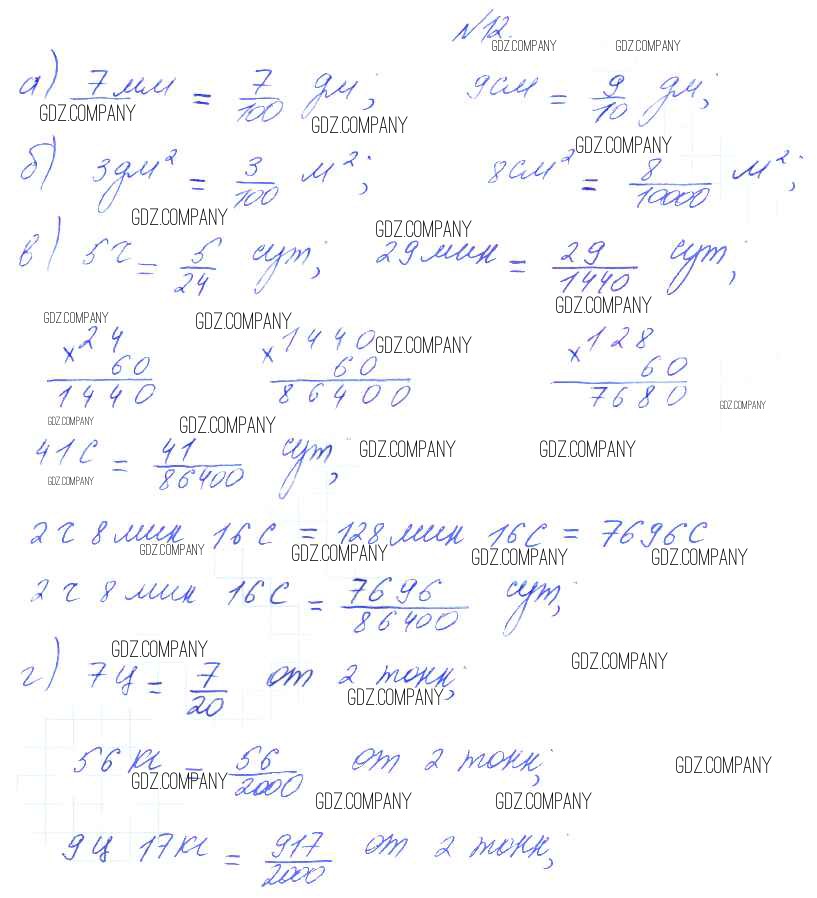 №12.
GDZ.COMPANY GDZ.COMPANY
а) 7мм = 7/100 дм; 9см = 9/10 дм;
GDZ.COMPANY GDZ.COMPANY
GDZ.COMPANY
б) 3дм² = 3/100 м²; 8см² = 8/10000 м²;
GDZ.COMPANY GDZ.COMPANY
в) 5ч = 5/24 сут; 29мин = 29/1440 сут;
GDZ.COMPANY
GDZ.COMPANY GDZ.COMPANY GDZ.COMPANY
×24 ×1440 ×128
60 60 60
1440 86400 7680
GDZ.COMPANY GDZ.COMPANY GDZ.COMPANY
41с = 41/86400 сут;
GDZ.COMPANY GDZ.COMPANY GDZ.COMPANY
2ч 8мин 16с = 128мин 16с = 7696с
GDZ.COMPANY GDZ.COMPANY GDZ.COMPANY GDZ.COMPANY
2ч 8мин 16с = 7696/86400 сут;
GDZ.COMPANY GDZ.COMPANY
г) 7ц = 7/20 от 2 тонн;
GDZ.COMPANY
56кг = 56/2000 от 2 тонн;
GDZ.COMPANY GDZ.COMPANY
GDZ.COMPANY GDZ.COMPANY
9ц 17кг = 917/2000 от 2 тонн;